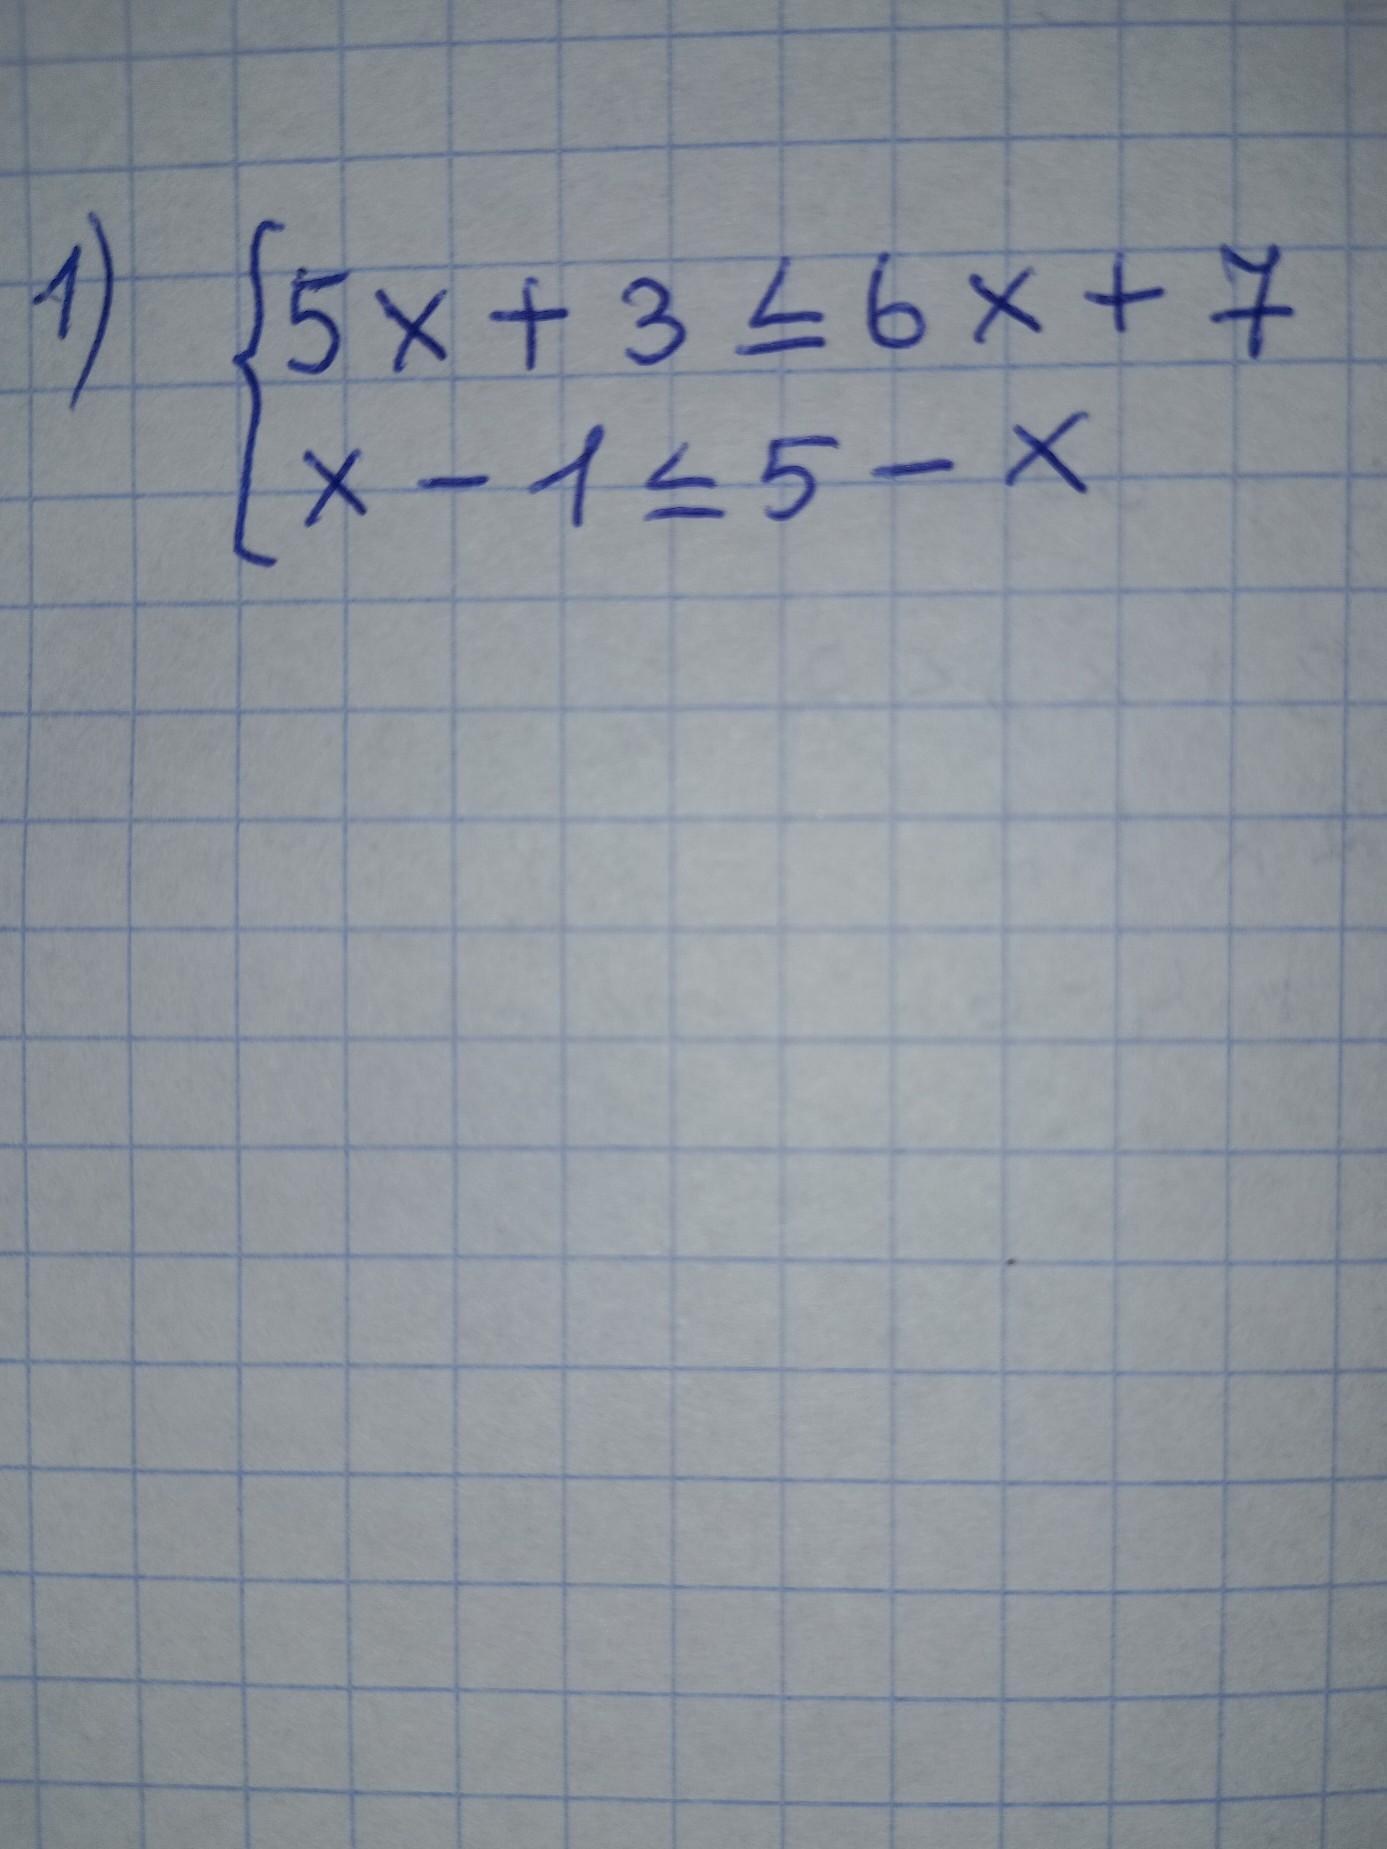 1) { 5x + 3 ≤ 6x + 7
x - 1 ≤ 5 - x